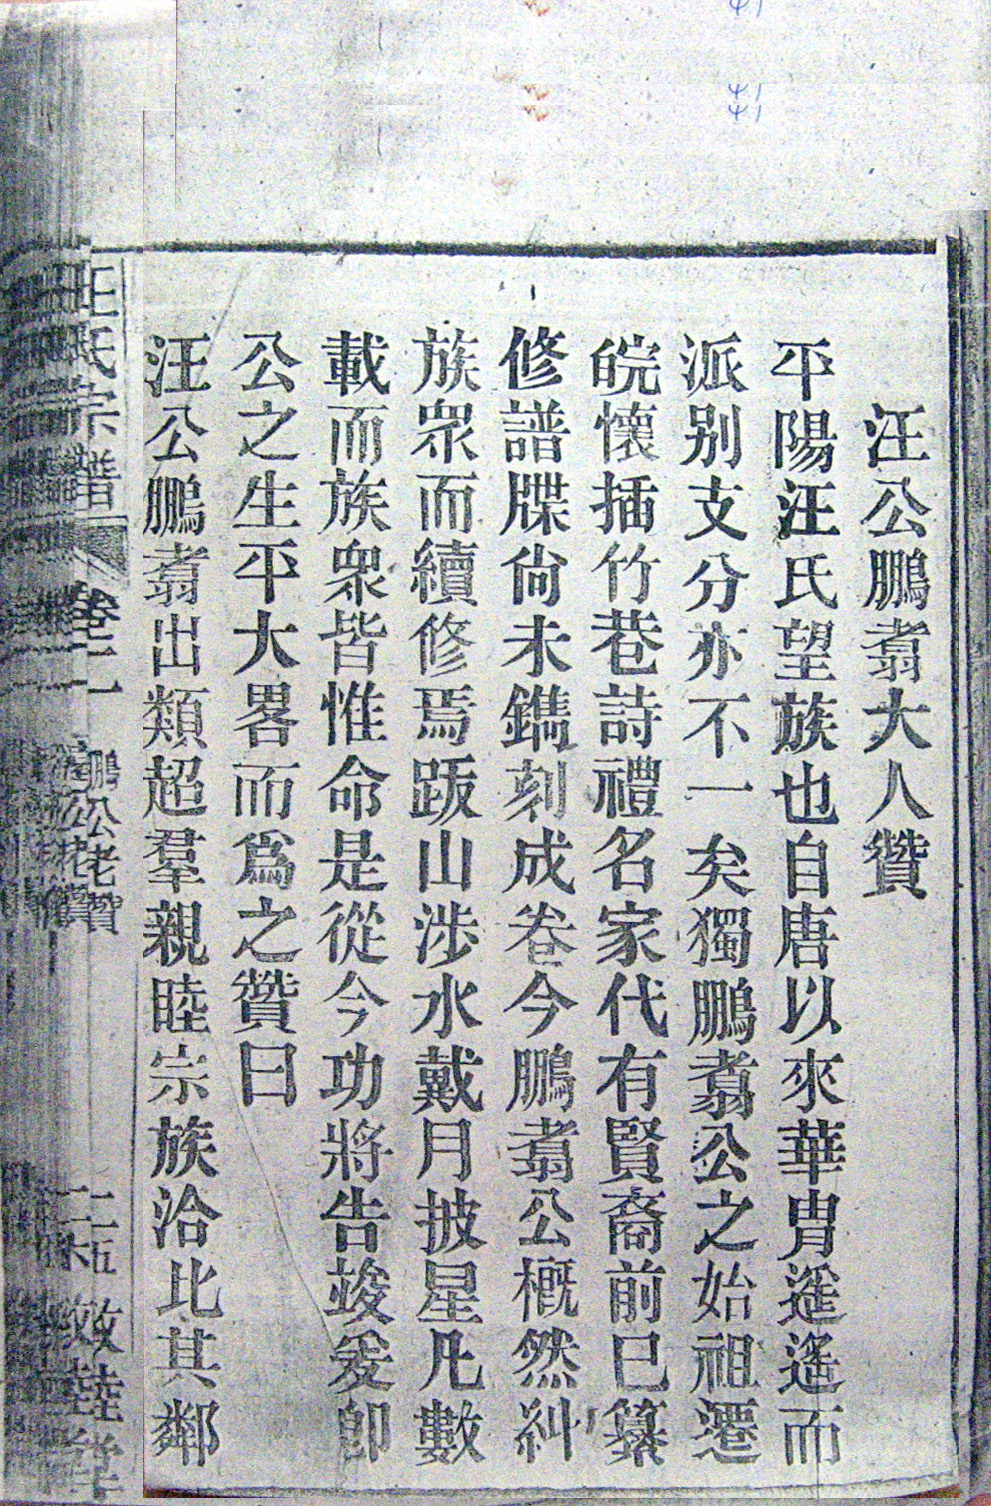 41
41
汪公鵬翥大人贊
平陽汪氏望族也自唐以來華胄遥遥而
派别支分亦不一矣獨鵬翥公之始祖遷
皖懷插竹巷詩禮名家代有賢裔前巳纂
修譜牒尙未鐫刻成卷今鵬翥公槪然糾
族眾而續修焉跋山涉水戴月披星凡數
載而族眾皆惟命是從今功將告竣爰卽
公之生平大畧而爲之贊曰
汪公鵬翥出類超羣親睦宗族洽比其鄰
汪氏宗譜 卷二 鵬公老贊 二五 敦睦堂